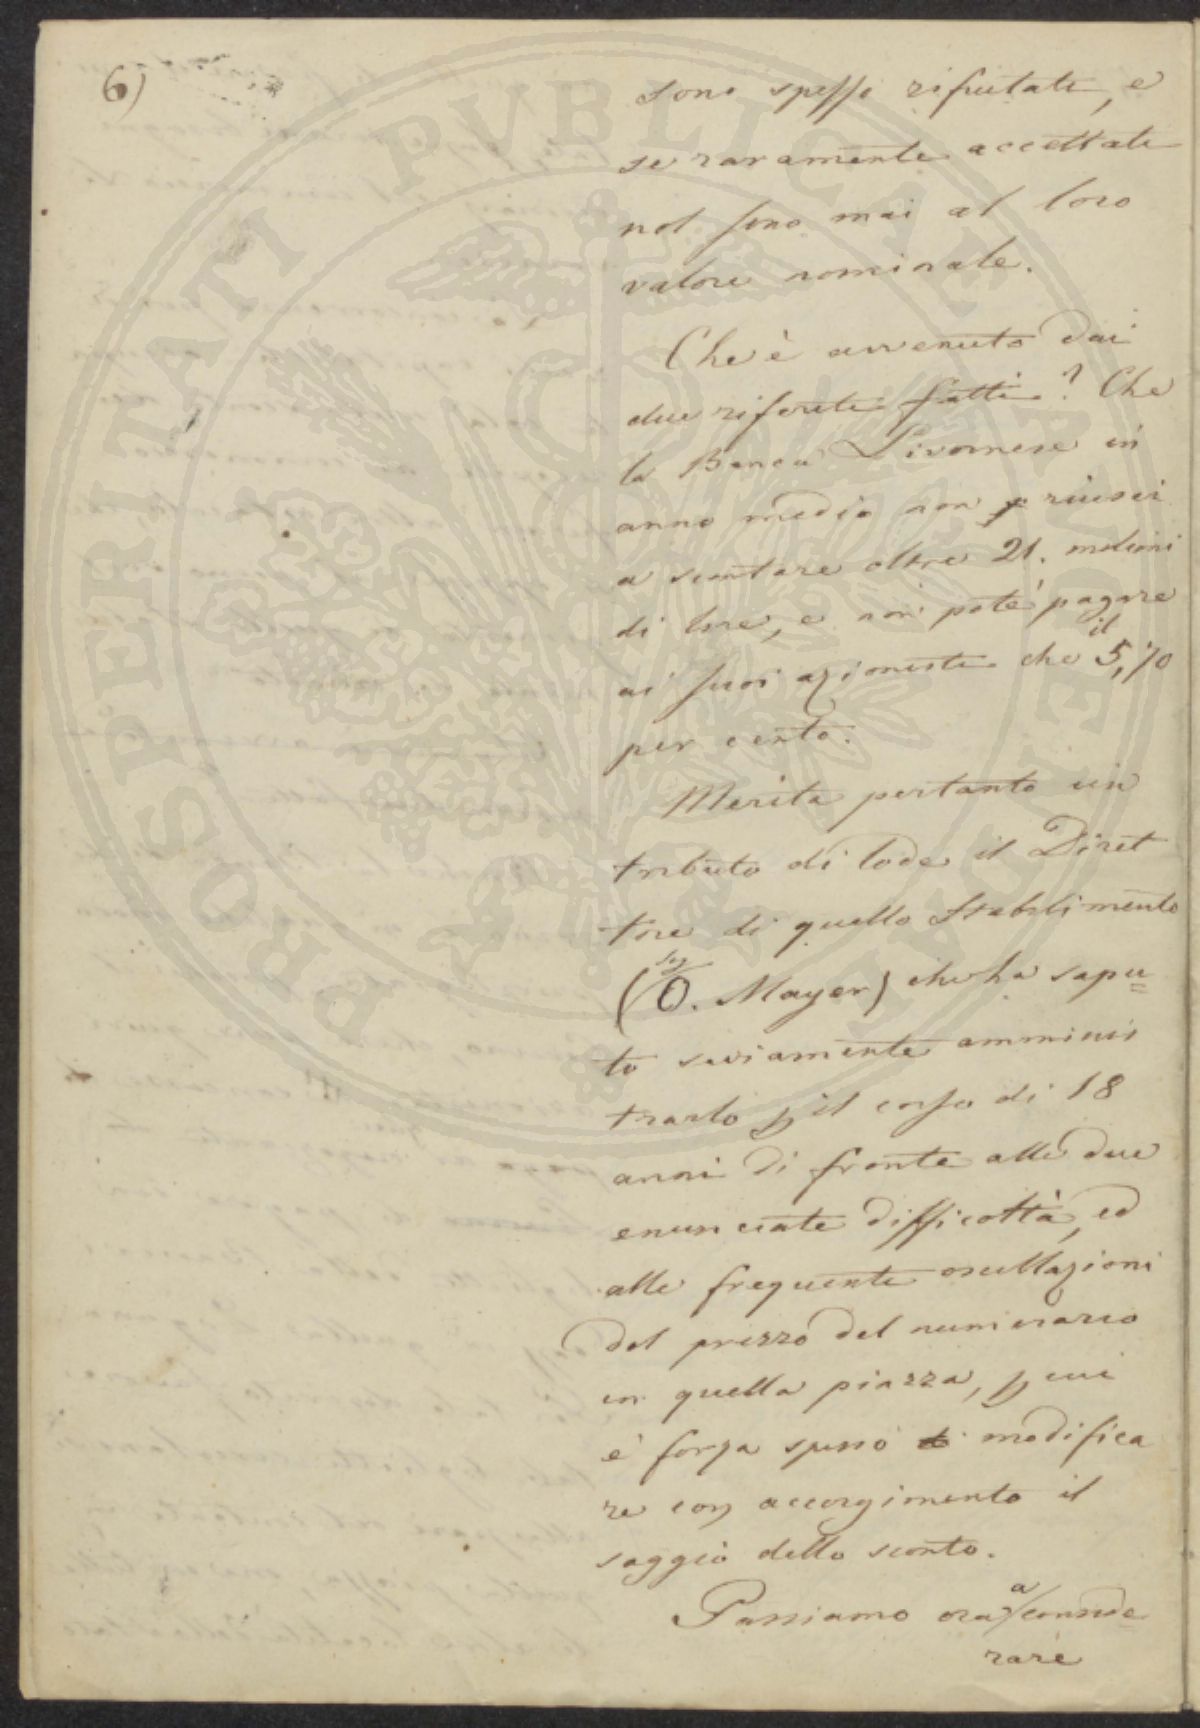 6)
sono spesso rifiutati, e
se raramente accettati
nol sono mai al loro
valore nominale.
Che è avvenuto dai
due riferiti fatti? Che
la Banca Livornese in
anno medio non riuscì
a scontare oltre 21. milioni
di lire, e non poté pagare
ai suoi azionisti che il 5,70
per cento.
Merita pertanto un
tributo di lode il Diret
tore di quello Stabilimento
(Sig O. Mayer) che ha sapu=
to saviamente amminis
trarlo p il corso di 18
anni di fronte alle due
enunciate difficoltà, ed
alle frequenti oscillazioni
del prezzo del numerario
in quella piazza, p cui
è forza spesso modifica
re con accorgimento il
saggio dello sconto.
Passiamo ora a conside=
rare
PROSPERITATI PVBLICAE AVGENDAE